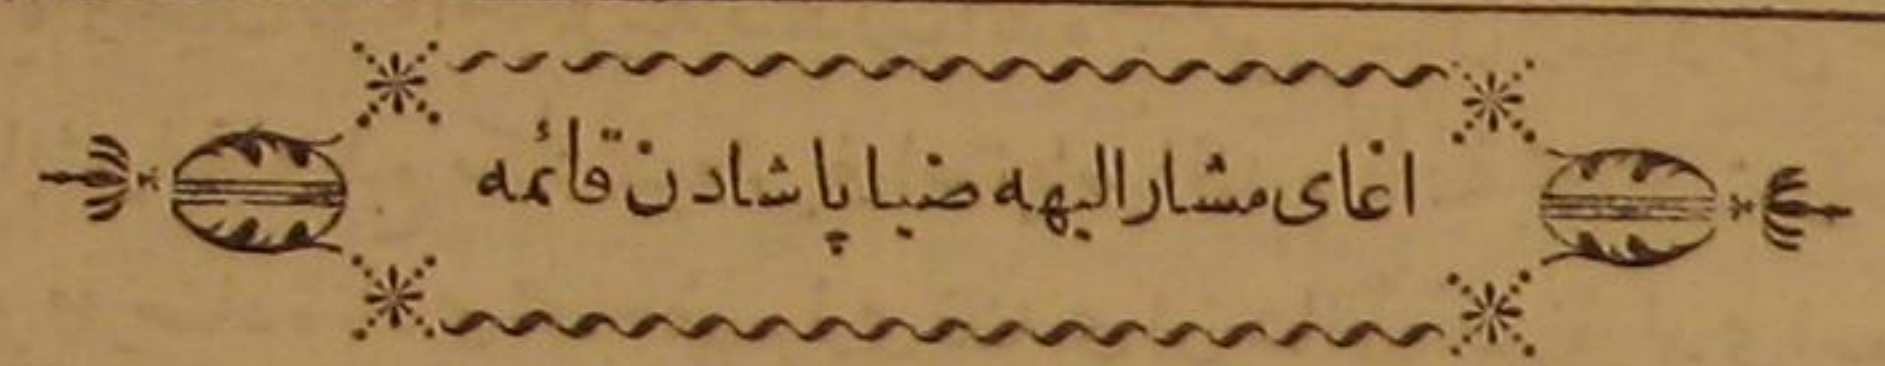 اغای مشار الیهه ضیا پاشادن قائمه